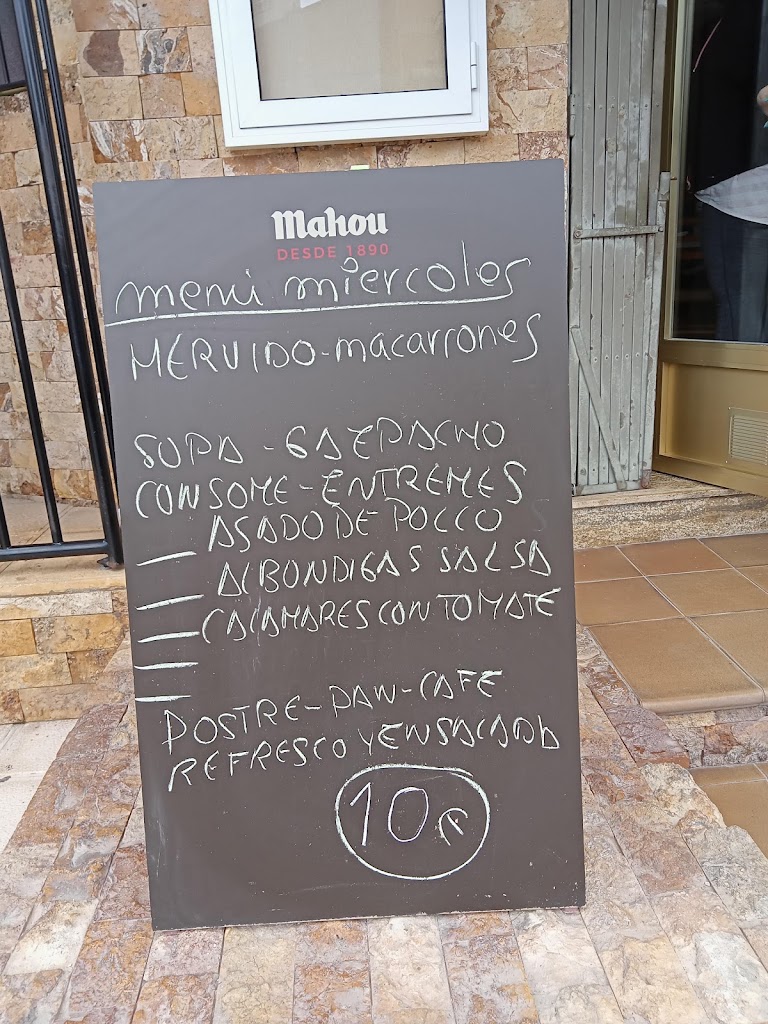 Mahou
DESDE 1890
menú miercoles
HERVIDO-macarrones
SOPA - GAZPACHO
CONSOME - ENTREMES
ASADO DE POLLO
ALBONDIGAS SALSA
CALAMARES CON TOMATE
POSTRE-PAN-CAFE
REFRESCO Y ENSALADA
10€